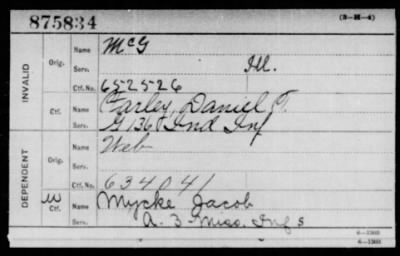 875834
(3-H-4)
INVALID
Orig.
Name McG
Serv. Ill.
Ctf. No. 652526
Ctf.
Name Carley, Daniel T.
Serv. G 136 Ind Inf
DEPENDENT
Orig.
Name Web
Serv.
Ctf. No. 634041
W Ctf.
Name Mycke Jacob
Serv. A. 3 Miso. Inf s
6-3303
6-3303